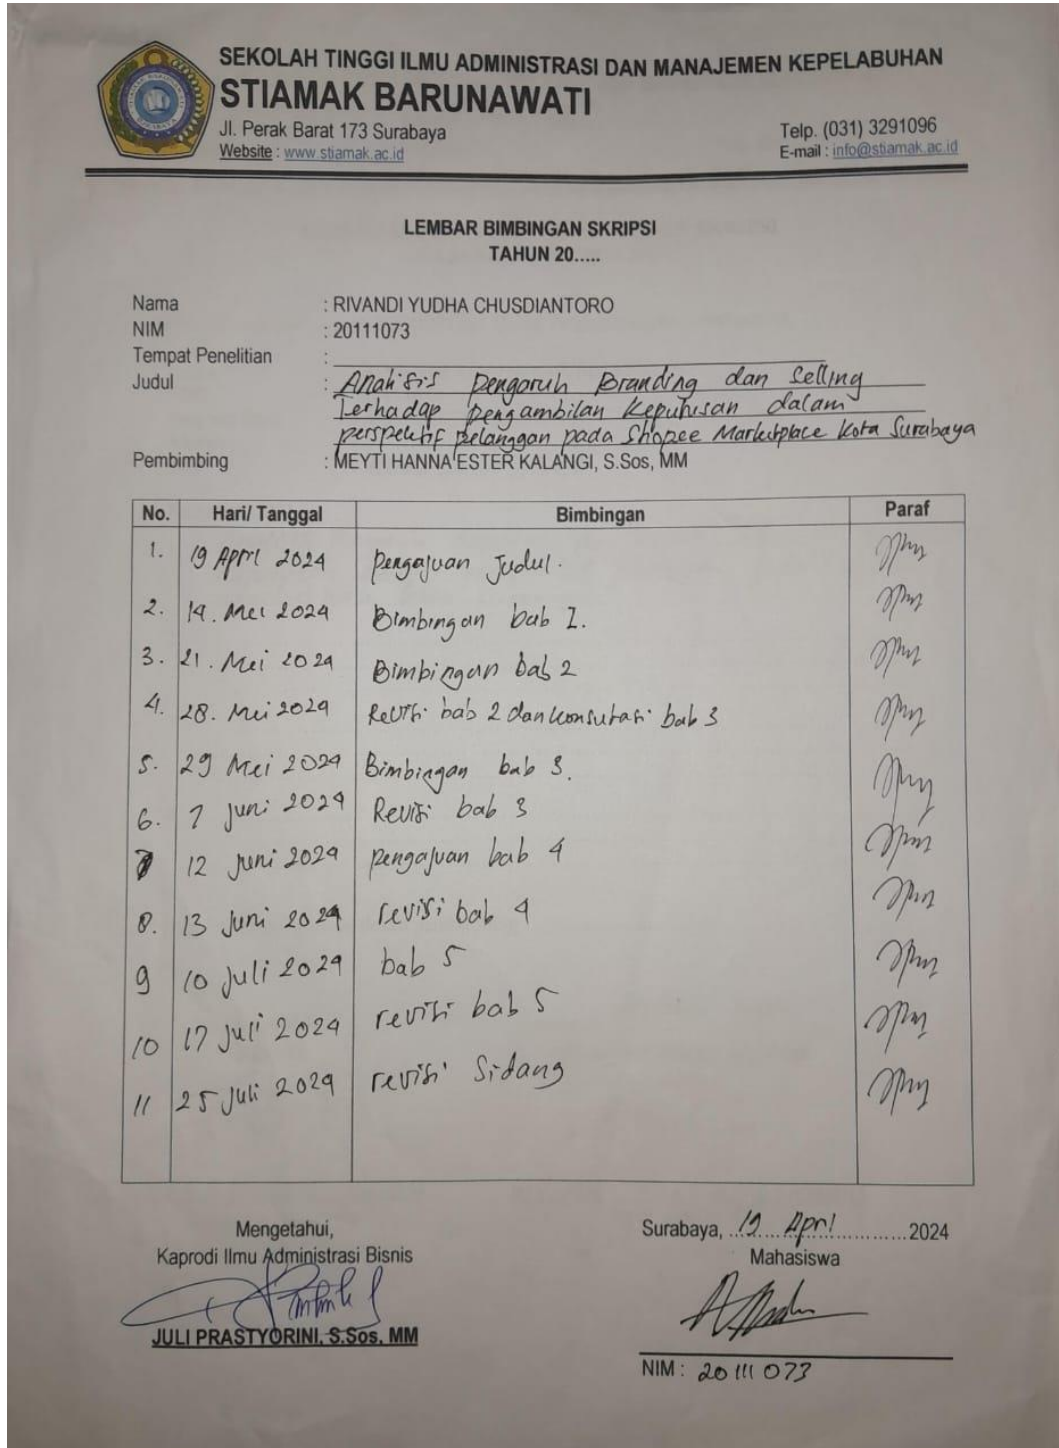 SEKOLAH TINGGI ILMU ADMINISTRASI DAN MANAJEMEN KEPELABUHAN
STIAMAK BARUNAWATI
Jl. Perak Barat 173 Surabaya
Telp. (031) 3291096
Website : www.stiamak.ac.id
E-mail : info@stiamak.ac.id
LEMBAR BIMBINGAN SKRIPSI
TAHUN 20.....
Nama : RIVANDI YUDHA CHUSDIANTORO
NIM : 20111073
Tempat Penelitian :
Judul : Analisis Pengaruh Branding dan Selling
Terhadap pengambilan Keputusan dalam
perspektif pelanggan pada Shopee Marketplace Kota Surabaya
Pembimbing : MEYTI HANNA ESTER KALANGI, S.Sos, MM
No. Hari/ Tanggal Bimbingan Paraf
1. 19 April 2024 Pengajuan Judul.
2. 14. Mei 2024 Bimbingan bab 1.
3. 21. Mei 2024 Bimbingan bab 2
4. 28. Mei 2024 Revisi bab 2 dan konsultasi bab 3
5. 29 Mei 2024 Bimbingan bab 3.
6. 7 Juni 2024 Revisi bab 3
7 12 Juni 2024 pengajuan bab 4
8. 13 Juni 2024 revisi bab 4
9 10 Juli 2024 bab 5
10 17 Juli 2024 revisi bab 5
11 25 Juli 2024 revisi Sidang
Mengetahui,
Kaprodi Ilmu Administrasi Bisnis
JULI PRASTYORINI, S.Sos, MM
Surabaya, 19 April 2024
Mahasiswa
NIM : 20111073